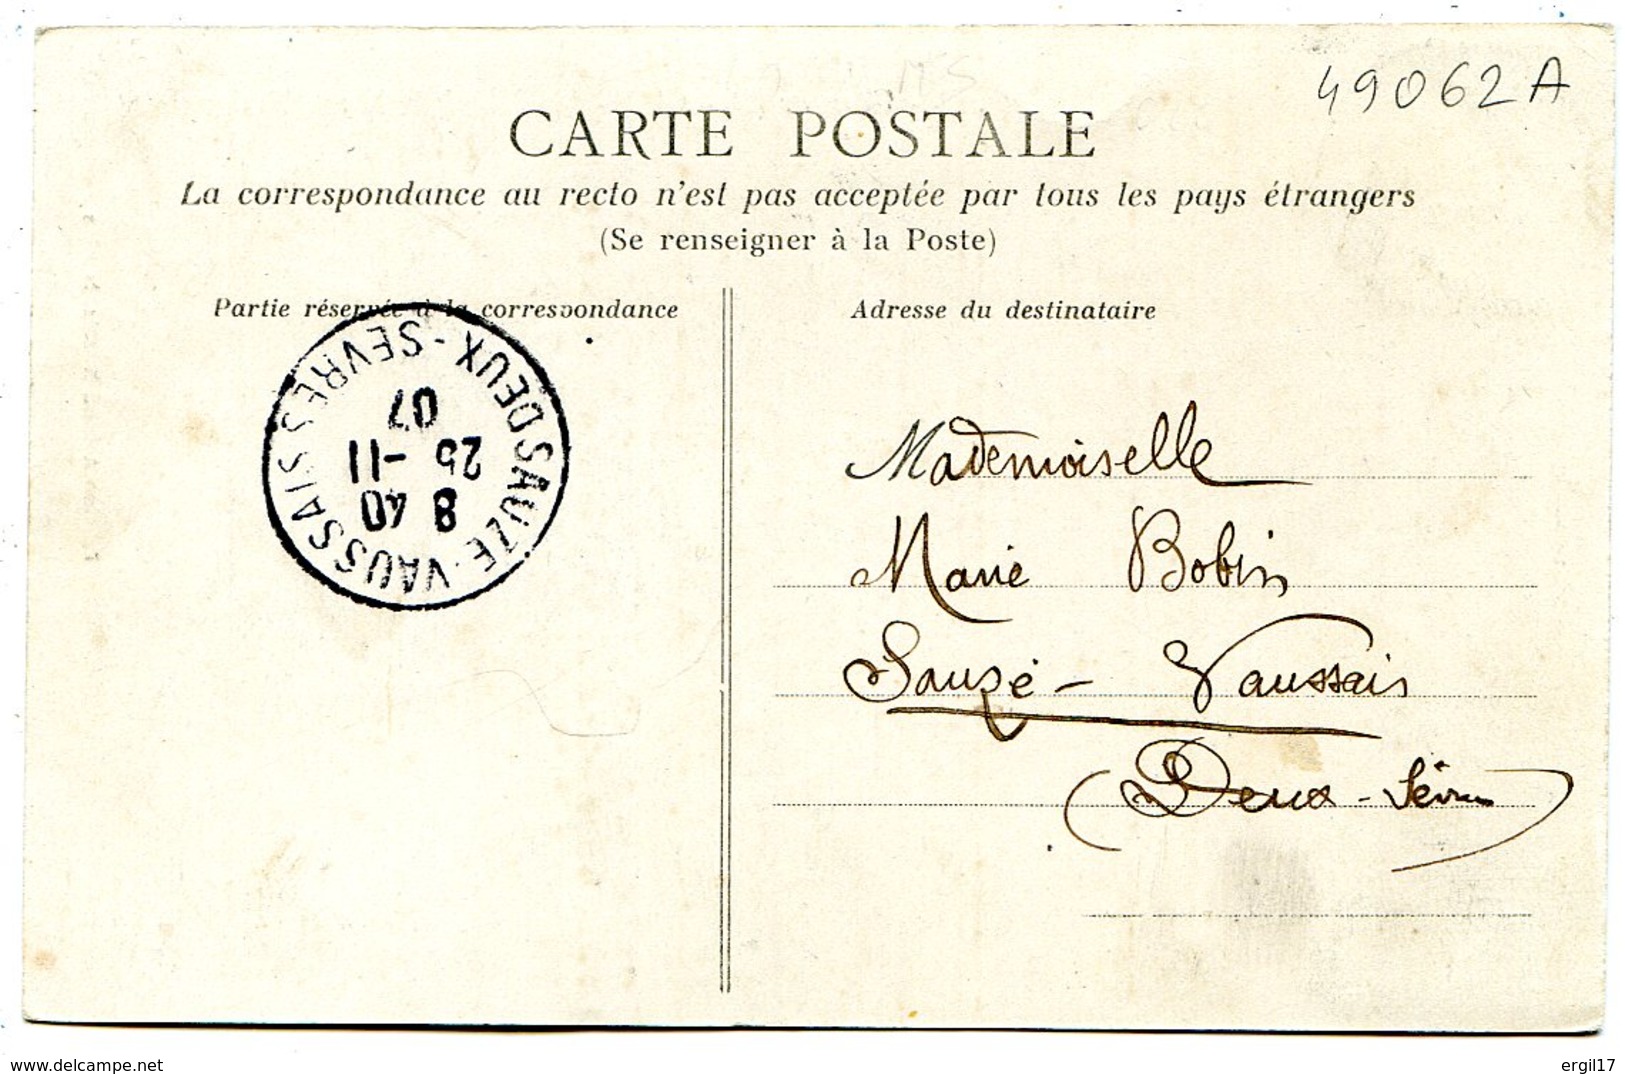 49062A
CARTE POSTALE
La correspondance au recto n'est pas acceptée par tous les pays étrangers
(Se renseigner à la Poste)
Partie réservée à la correspondance
Adresse du destinataire
SAUZÉ-VAUSSAIS
DEUX-SÈVRES
8 40
25 -11
07
Mademoiselle
Marie Bobin
Sauzé - Vaussais
(Deux-Sèvres)
www.delcampe.net
ergil17